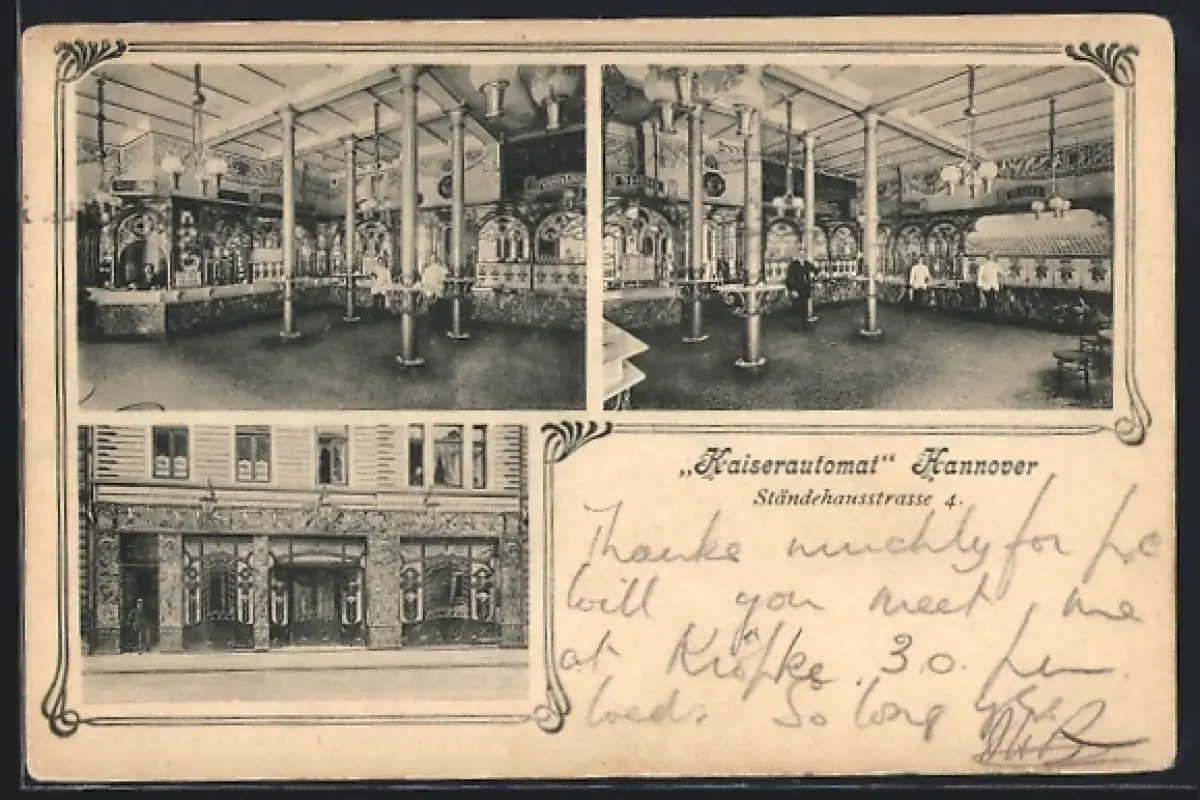 „Kaiserautomat“ Hannover
Ständehausstrasse 4.
Thanks muchly for p.c
Will you meet me
at Kröpke. 30. pm
weds. So long